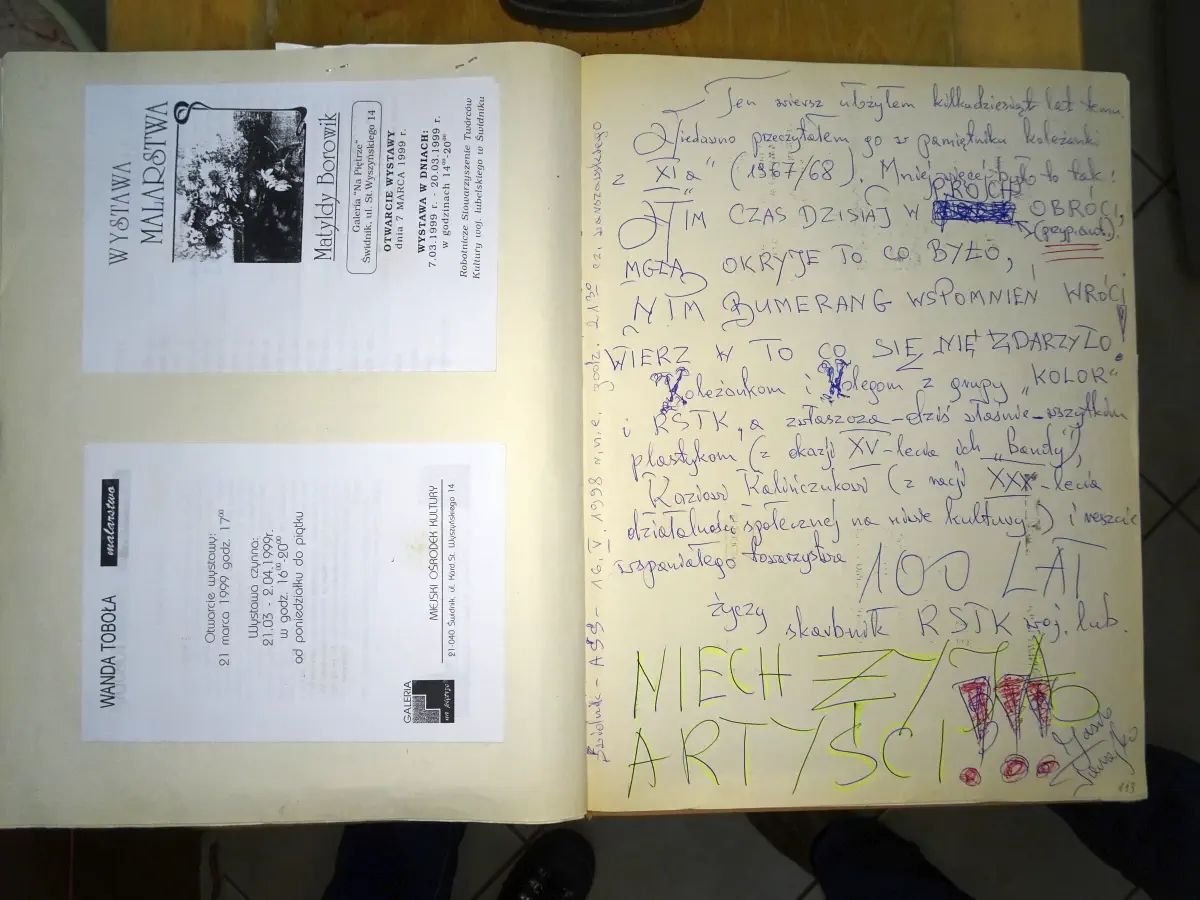 WYSTAWA
MALARSTWA
Matyldy Borowik
Galeria "Na Piętrze"
Świdnik, ul. St. Wyszyńskiego 14
OTWARCIE WYSTAWY
dnia 7 MARCA 1999 r.
WYSTAWA W DNIACH:
7.03.1999 r. - 20.03.1999 r.
w godzinach 14⁰⁰-20⁰⁰
Robotnicze Stowarzyszenie Twórców
Kultury woj. lubelskiego w Świdniku
WANDA TOBOŁA
malarstwo
Otwarcie wystawy:
21 marca 1999 godz. 17⁰⁰
Wystawa czynna:
21.03 - 2.04.1999r.
w godz. 16⁰⁰-20⁰⁰
od poniedziałku do piątku
GALERIA
na piętrze
MIEJSKI OŚRODEK KULTURY
21-040 Świdnik, ul. Kard St. Wyszyńskiego 14
Ten wiersz ułożyłem kilkadziesiąt lat temu.
Niedawno przeczytałem go w pamiętniku koleżanki
z XI a" (1967/68). Mniej więcej było to tak:
PROCH
NIM CZAS DZISIAJ W OBRÓCI,
(przyp. aut.)
MGŁĄ OKRYJE TO CO BYŁO,
NIM BUMERANG WSPOMNIEŃ WRÓCI
WIERZ W TO CO SIĘ NIE ZDARZYŁO!
Koleżankom i Kolegom z grupy „KOLOR"
i RSTK, a zwłaszcza - dziś właśnie - wszystkim
plastykom (z okazji XV-lecia ich „Bandy"),
Kaziowi Kalińczukowi (z racji XXX-lecia
działalności społecznej na niwie kultury) i reszcie
wspaniałego towarzystwa 100 LAT
życzy skarbnik RSTK woj. lub.
NIECH ŻYJĄ
ARTYŚCI!!!
Świdnik - A99 - 16.V.1998 n.n.e. godz. 21³⁰ cz. warszawskiego
113